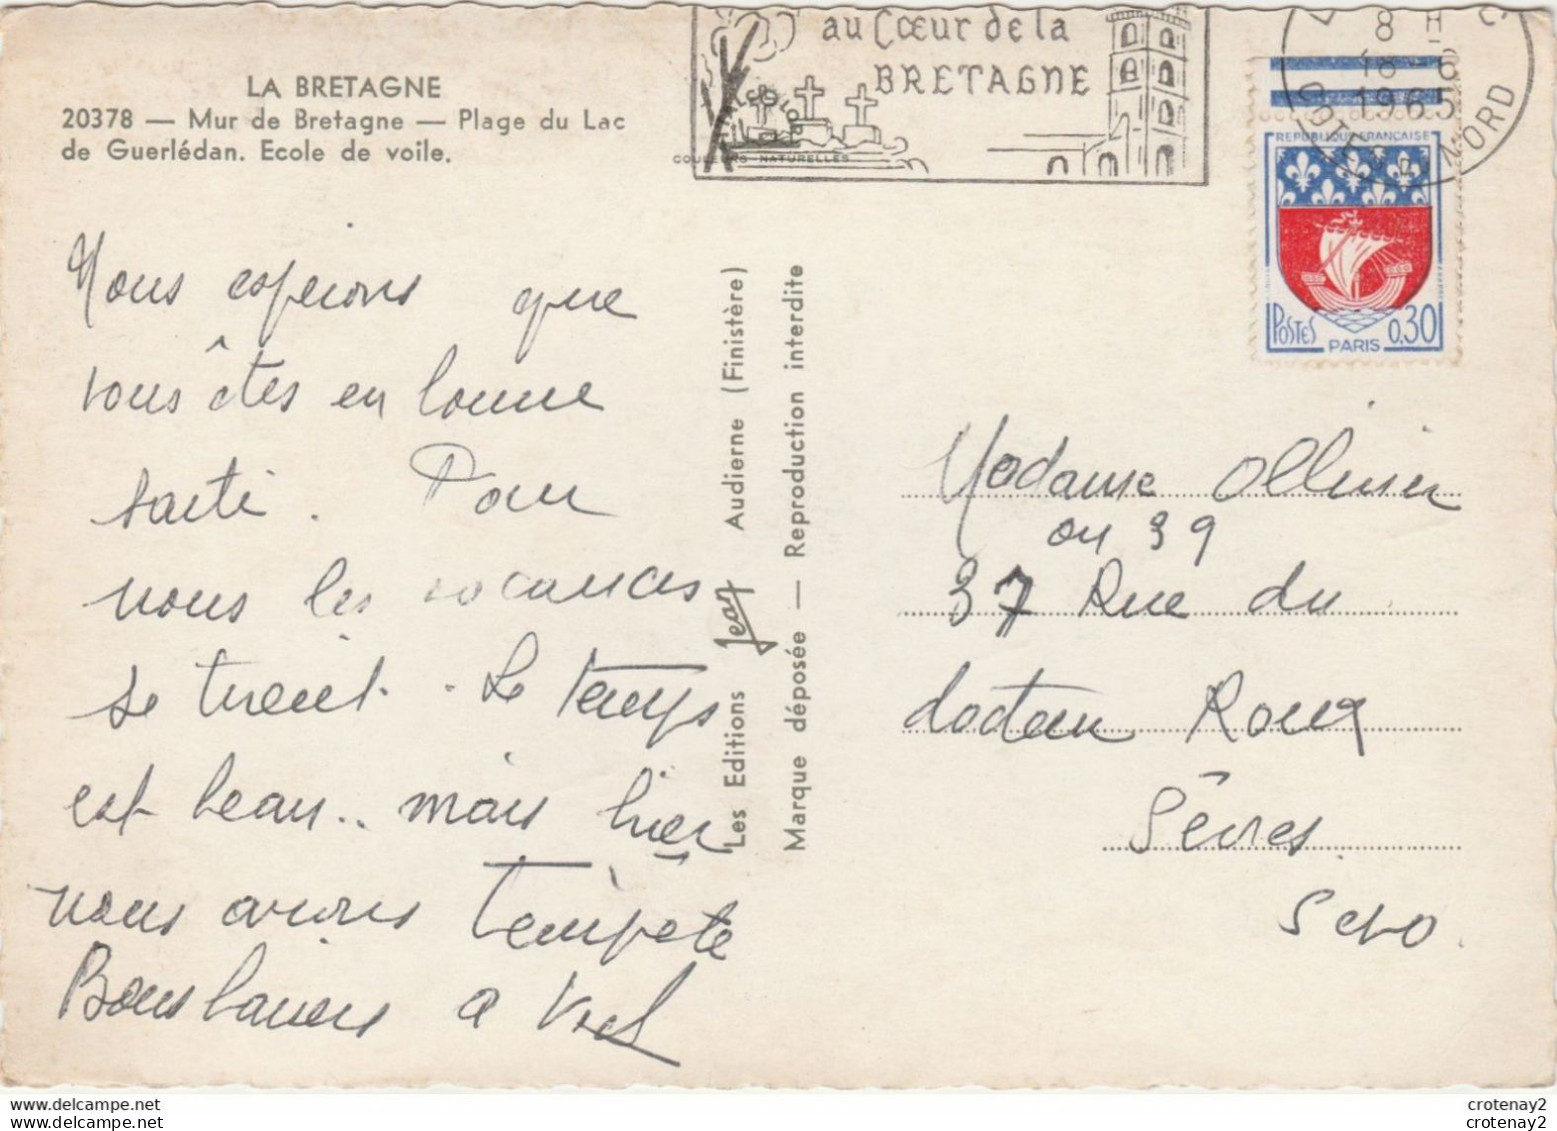 LA BRETAGNE
20378 — Mur de Bretagne — Plage du Lac
de Guerlédan. Ecole de voile.
au Cœur de la
BRETAGNE
COULEURS NATURELLES
8 H
18-6
1965
COTES DU NORD
REPUBLIQUE FRANCAISE
POSTES
PARIS
0,30
Nous espérons que
vous êtes en bonne
santé. Pour
nous les vacances
se tirent. Le temps
est beau.. mais hier
nous avions tempête
Bons baisers
Les Editions Jean Audierne (Finistère)
Marque déposée — Reproduction interdite
Madame Ollivier
ou 39
37 Rue du
docteur Roux
Sèvres
S et O.
crotenay2
crotenay2
www.delcampe.net
www.delcampe.net